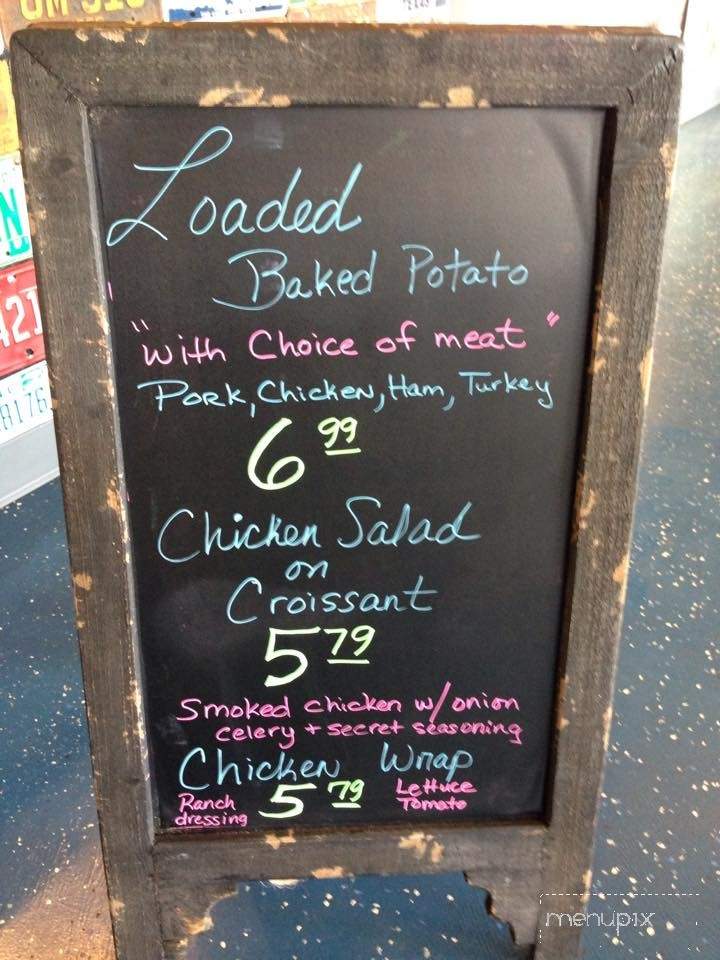 Loaded
Baked Potato
"With Choice of meat"
Pork, Chicken, Ham, Turkey
6 99
Chicken Salad
on
Croissant
5 79
Smoked chicken w/onion
celery + secret seasoning
Chicken Wrap
Ranch
dressing
5 79
Lettuce
Tomato
menupix